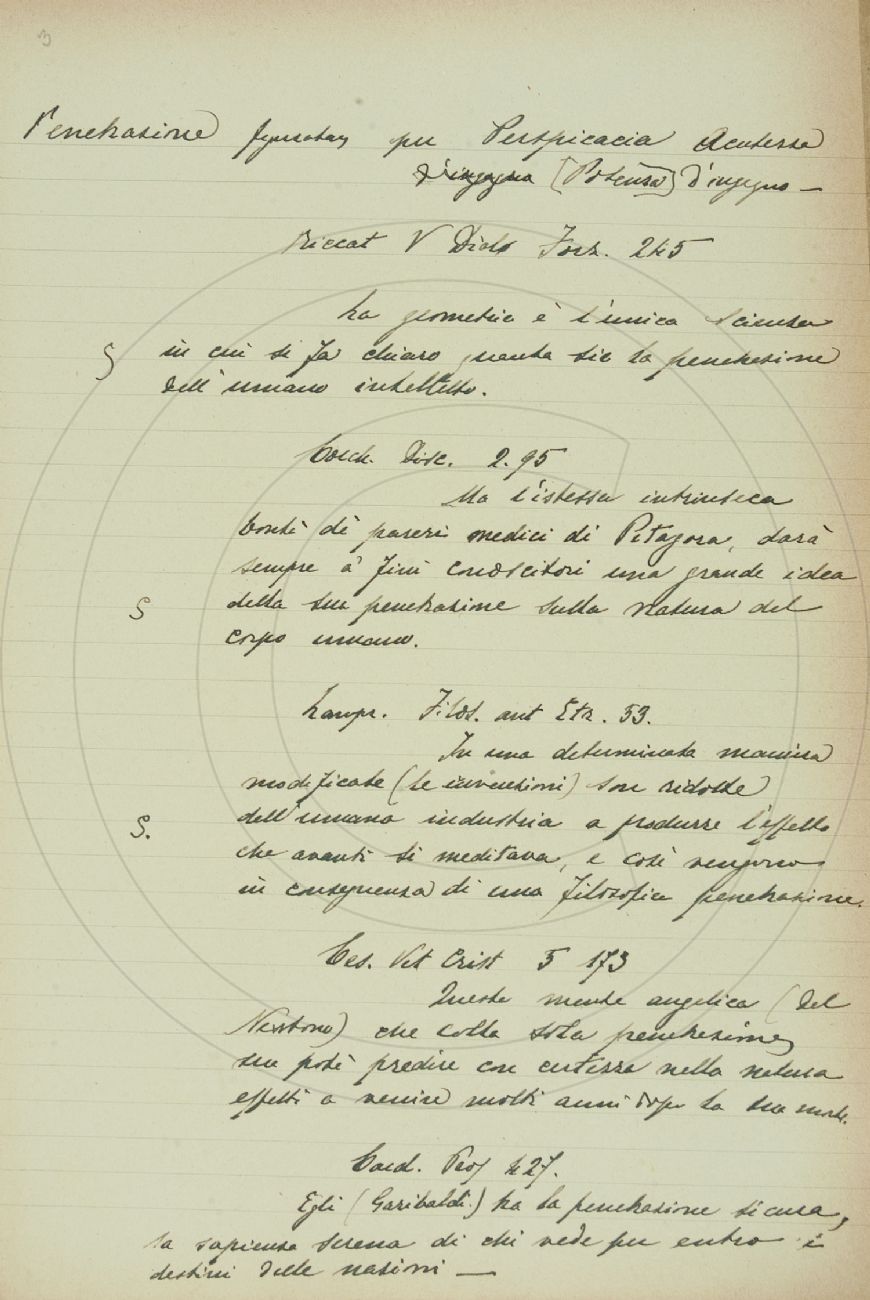 3
Penetrazione figuratam per Perspicacia Acutezza
d'ingegno [Potenza] d'ingegno —
Riccat V Dial Forz. 245
La geometria è l'unica scienza
S in cui si fa chiaro quanta sia la penetrazione
dell'umano intelletto.
Cocch. Disc. 2.95
Ma l'istessa intrinseca
bontà dè pareri medici di Pitagora, darà
sempre a' fini conoscitori una grande idea
S della sua penetrazione sulla natura del
corpo umano.
Lampr. Filos. ant Etr. 53.
In una determinata maniera
modificate (le invenzioni) son ridotte
S. dell'umana industria a produrre l'effetto
che avanti si meditava, e così vengono
in conseguenza di una filosofica penetrazione.
Ces. Vit Crist 5 173
Questa mente angelica (del
Newtono) che colla sola penetrazione
sua potè predire con certezza nella natura
effetti a venire molti anni dopo la sua morte.
Card. 427.
Egli (Garibaldi) ha la penetrazione sicura,
la sapienza serena di chi vede per entro i
destini delle nazioni —